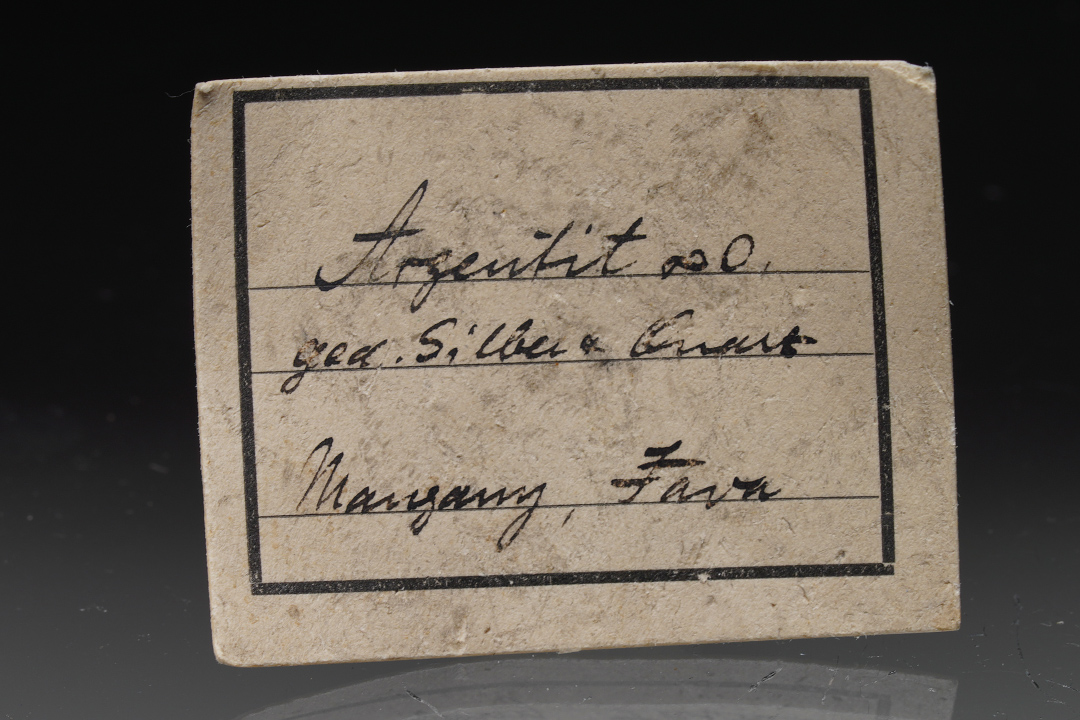 Argentit ∞O.
ged. Silber & Quarz
Mangany, Java